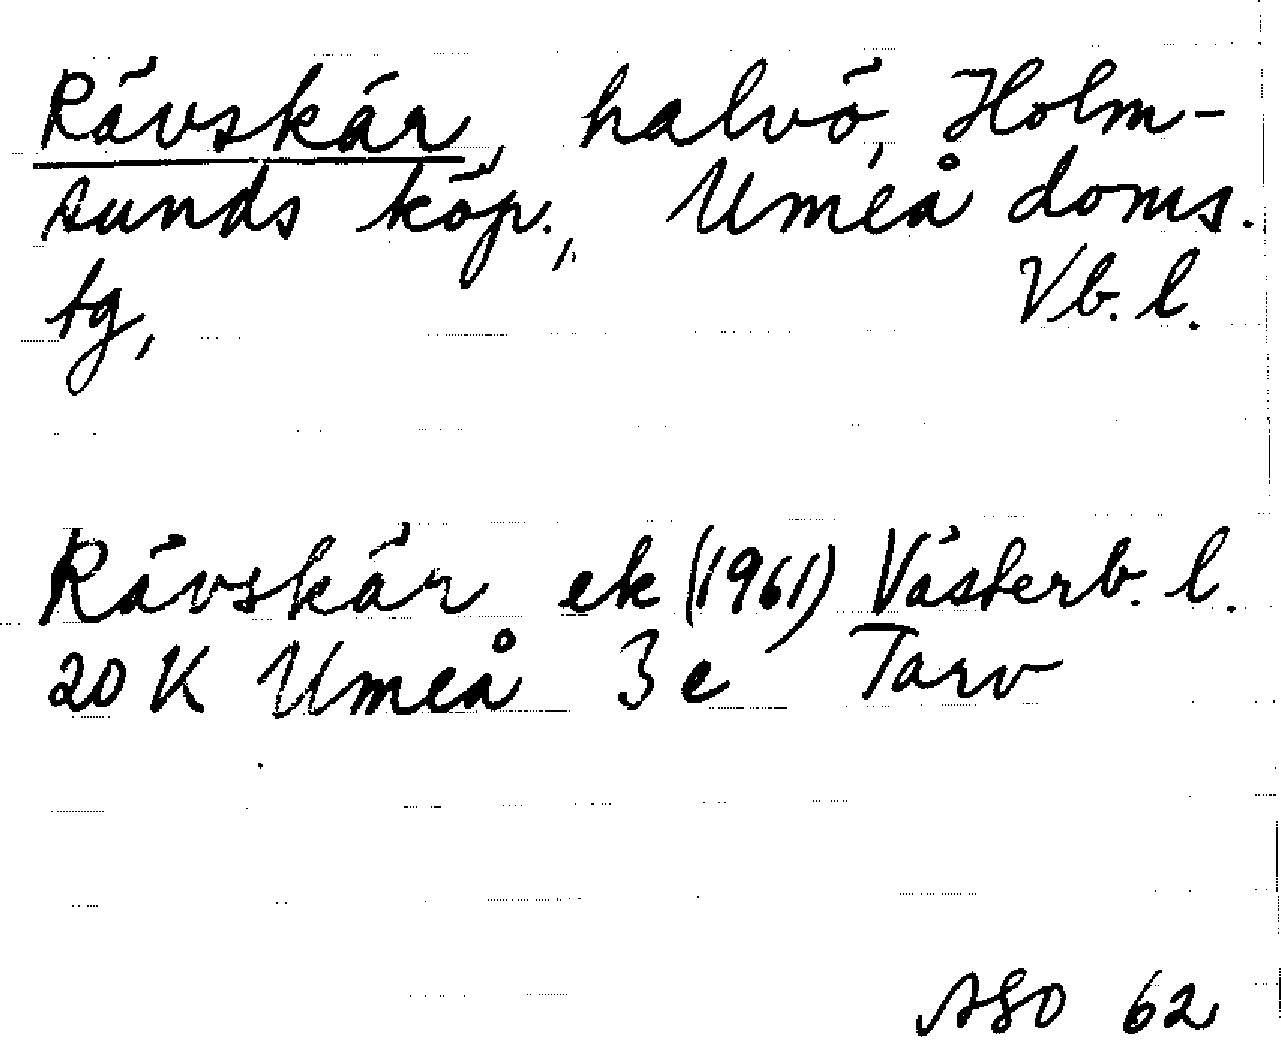 Rävskär, halvö, Holm-
sunds köp., Umeå doms.
tg, Vb. l.
Rävskär ek (1961) Västerb. l.
20 K Umeå 3 e Tarv
ASO 62